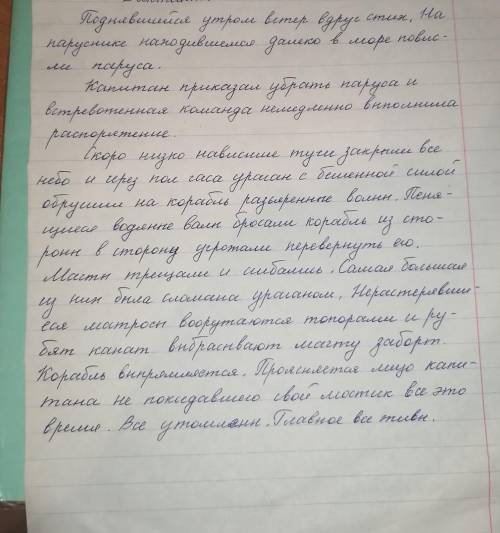 Поднявшийся утром ветер вдруг стих. На
паруснике находившемся далеко в море повис-
ли паруса.
Капитан приказал убрать паруса и
встревоженная команда немедленно выполнила
распоряжение.
Скоро низко нависшие тучи закрыли все
небо и через пол часа ураган с бешенной силой
обрушил на корабль разъяренные волны. Пеня-
щиеся водяные валы бросали корабль из сто-
роны в сторону угрожали перевернуть его.
Мачты трещали и сгибались. Самая большая
из них была сломана ураганом. Нерастерявши-
еся матросы вооружаются топорами и ру-
бят канат выбрасывают мачту заборт.
Корабль выпрямляется. Проясняется лицо капи-
тана не покидавшего свой мостик все это
время. Все утомлены. Главное все живы.